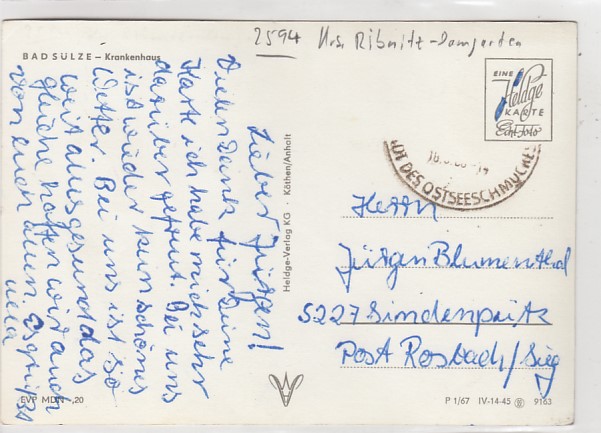 2594 Krs. Ribnitz-Damgarten
BAD SÜLZE – Krankenhaus
EINE
Heldge
KARTE
Echt Foto
DES OSTSEESCHMUCKES
Lieber Jürgen!
Vielen Dank für Deine
Karte ich habe mich sehr
darüber gefreut. Bei uns
ist wieder kein schönes
Wetter. Bei uns ist so
weit alles gesund das
gleiche hoffen wir auch
von euch allen Es grüßt
Heldge-Verlag KG · Köthen/Anhalt
Herrn
Jürgen Blumenthal
5227 Lindenpütz
Post Rosbach/Sieg
EVP MDN -,20
P 1/67 IV-14-45 9163